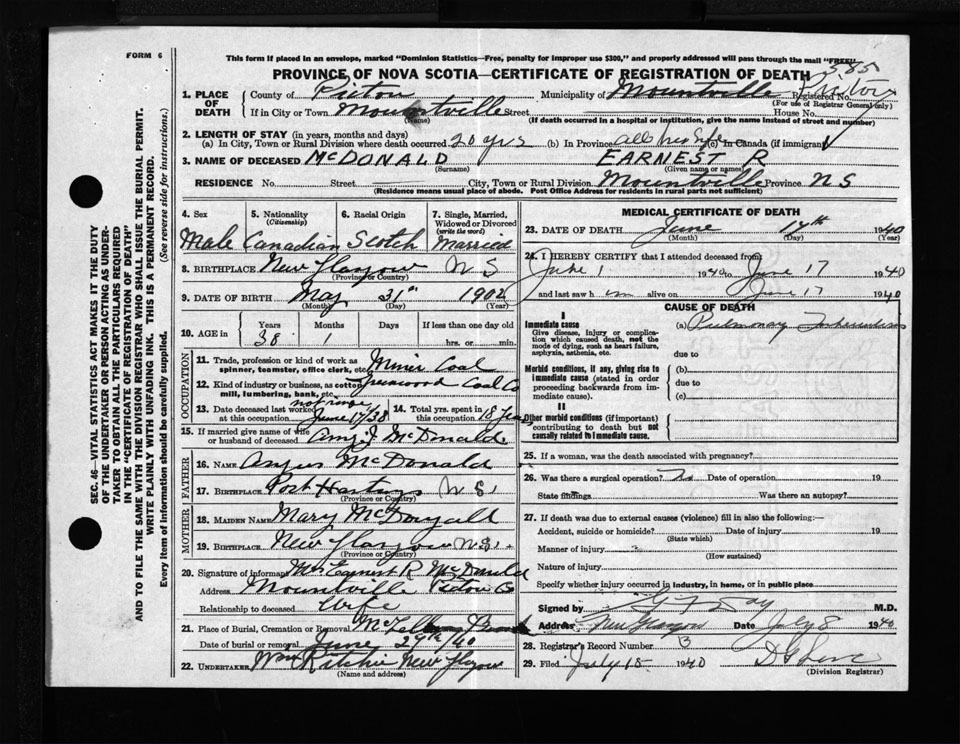 FORM 6
This form if placed in an envelope, marked "Dominion Statistics—Free, penalty for improper use $300," and properly addressed will pass through the mail "FREE"
PROVINCE OF NOVA SCOTIA—CERTIFICATE OF REGISTRATION OF DEATH 385
1. PLACE OF DEATH County of Pictou Municipality of Mountville Registered No.
(For use of Registrar General only)
If in City or Town Mountville Street House No.
(Name) (If death occurred in a hospital or institution, give the name instead of street and number)
2. LENGTH OF STAY (in years, months and days)
(a) In City, Town or Rural Division where death occurred 20 yrs (b) In Province all his life (c) In Canada (if immigrant)
3. NAME OF DECEASED McDONALD EARNEST R
(Surname) (Given name or names)
RESIDENCE No. Street City, Town or Rural Division Mountville Province N S
(Residence means usual place of abode. Post Office Address for residents in rural parts not sufficient)
4. Sex 5. Nationality (Citizenship) 6. Racial Origin 7. Single, Married, Widowed or Divorced (write the word)
Male Canadian Scotch Married
8. BIRTHPLACE New Glasgow N S
(Province or Country)
9. DATE OF BIRTH May 31st 1902
(Month) (Day) (Year)
10. AGE in Years Months Days If less than one day old
38 1 hrs. or min.
OCCUPATION
11. Trade, profession or kind of work as spinner, teamster, office clerk, etc. Miner Coal
12. Kind of industry or business, as cotton mill, lumbering, bank, etc. Greenwood Coal Co
13. Date deceased last worked at this occupation June 17/38 14. Total yrs. spent in this occupation 18 Years
15. If married give name of wife or husband of deceased Amy J. McDonald
FATHER
16. NAME Angus McDonald
17. BIRTHPLACE Port Hastings N S
(Province or Country)
MOTHER
18. MAIDEN NAME Mary McDougall
19. BIRTHPLACE New Glasgow N.S.
(Province or Country)
20. Signature of informant Mrs. Earnest R McDonald
Address Mountville Pictou Co
Relationship to deceased Wife
21. Place of Burial, Cremation or Removal
Date of burial or removal June /40
22. UNDERTAKER Wm Ritchie New Glasgow
(Name and address)
MEDICAL CERTIFICATE OF DEATH
23. DATE OF DEATH June 17th 1940
(Month) (Day) (Year)
24. I HEREBY CERTIFY that I attended deceased from:
June 1 1940 to June 17 1940
and last saw him alive on June 17 1940
CAUSE OF DEATH
I
Immediate cause (a) Pulmonary Tuberculosis
Give disease, injury or complication which caused death, not the mode of dying, such as heart failure, asphyxia, asthenia, etc.
due to
Morbid conditions, if any, giving rise to immediate cause (stated in order proceeding backwards from immediate cause).
(b)
due to
(c)
II
Other morbid conditions (if important) contributing to death but not causally related to immediate cause.
25. If a woman, was the death associated with pregnancy?
26. Was there a surgical operation? No Date of operation 19
State findings Was there an autopsy?
27. If death was due to external causes (violence) fill in also the following:
Accident, suicide or homicide? Date of injury 19
(State which)
Manner of injury
(How sustained)
Nature of injury
Specify whether injury occurred in industry, in home, or in public place
Signed by Day M.D.
Address New Glasgow Date July 8 1940
28. Registrar's Record Number 13
29. Filed July 15 1940
(Division Registrar)
SEC. 46—VITAL STATISTICS ACT MAKES IT THE DUTY
OF THE UNDERTAKER OR PERSON ACTING AS UNDERTAKER
TO OBTAIN ALL THE PARTICULARS REQUIRED
IN THE "CERTIFICATE OF REGISTRATION OF DEATH"
AND TO FILE THE SAME WITH THE DIVISION REGISTRAR WHO SHALL ISSUE THE BURIAL PERMIT.
WRITE PLAINLY WITH UNFADING INK. THIS IS A PERMANENT RECORD.
Every item of information should be carefully supplied. (See reverse side for instructions.)